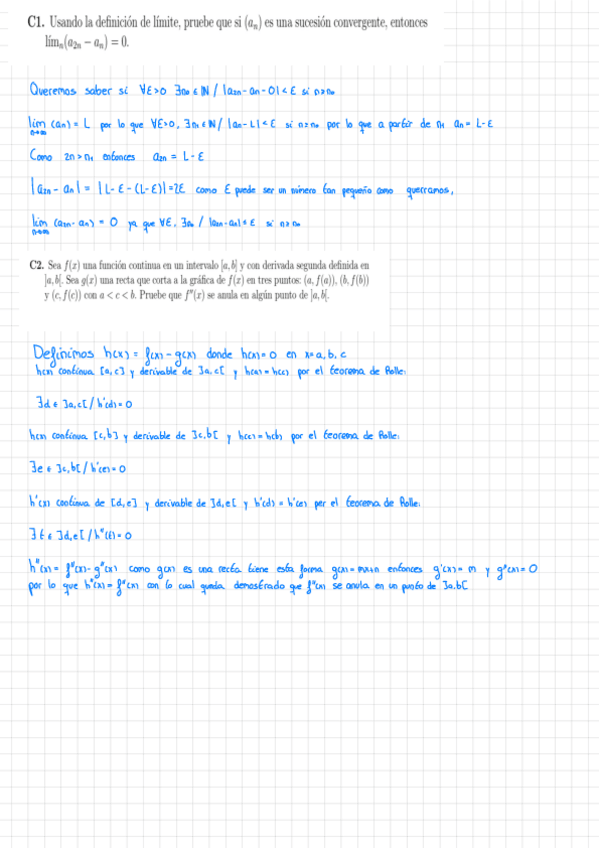 C1. Usando la definición de límite, pruebe que si (aₙ) es una sucesión convergente, entonces
límₙ(a₂ₙ − aₙ) = 0.
Queremos saber si ∀ε>0 ∃n₀ ∈ ℕ / |a₂ₙ - aₙ - 0| < ε si n≥n₀
lim n→∞ (aₙ) = L por lo que ∀ε>0, ∃n₁ ∈ ℕ / |aₙ - L| < ε si n≥n₀ por lo que a partir de n₁ aₙ = L-ε
Como 2n>n₁ entonces a₂ₙ = L-ε
|a₂ₙ - aₙ| = |L-ε-(L-ε)| = 2ε como ε puede ser un número tan pequeño como querramos,
lim n→∞ (a₂ₙ - aₙ) = 0 ya que ∀ε, ∃n₀ / |a₂ₙ - aₙ| < ε si n≥n₀
C2. Sea f(x) una función continua en un intervalo [a, b] y con derivada segunda definida en
]a, b[. Sea g(x) una recta que corta a la gráfica de f(x) en tres puntos: (a, f(a)), (b, f(b))
y (c, f(c)) con a < c < b. Pruebe que f″(x) se anula en algún punto de ]a, b[.
Definimos h(x) = f(x) - g(x) donde h(x)=0 en x=a, b, c
h(x) continua [a,c] y derivable de ]a,c[ y h(a) = h(c) por el teorema de Rolle:
∃d ∈ ]a,c[ / h'(d) = 0
h(x) continua [c,b] y derivable de ]c,b[ y h(c) = h(b) por el teorema de Rolle:
∃e ∈ ]c,b[ / h'(e) = 0
h'(x) continua de [d,e] y derivable de ]d,e[ y h'(d) = h'(e) per el teorema de Rolle:
∃t ∈ ]d,e[ / h"(t) = 0
h"(x) = f"(x) - g"(x) como g(x) es una recta tiene esta forma g(x) = mx+n entonces g'(x) = m y g"(x) = 0
por lo que h"(x) = f"(x) con lo cual queda demostrado que f"(x) se anula en un punto de ]a,b[